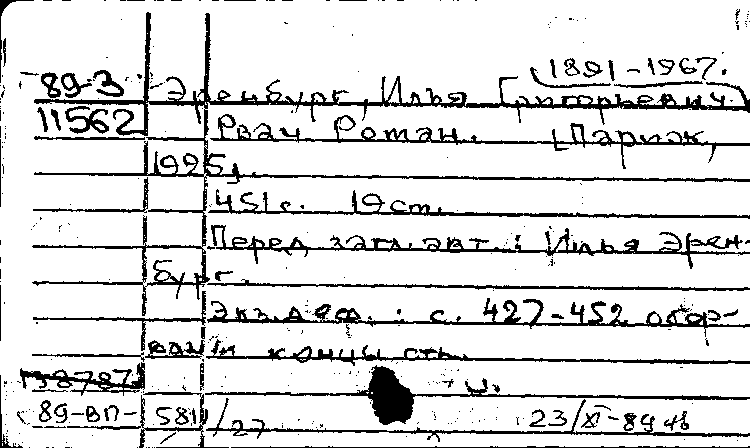 1891-1967.
89-3 Эренбург, Илья Григорьевич.
11562 Рвач. Роман. [Париж,
1925].
451 с. 19 cm.
Перед загл. авт.: Илья Эрен-
бург.
Экз. деф.: с. 427-452 обор-
ваны концы
89-ВП- 5811/27 23/XI-89